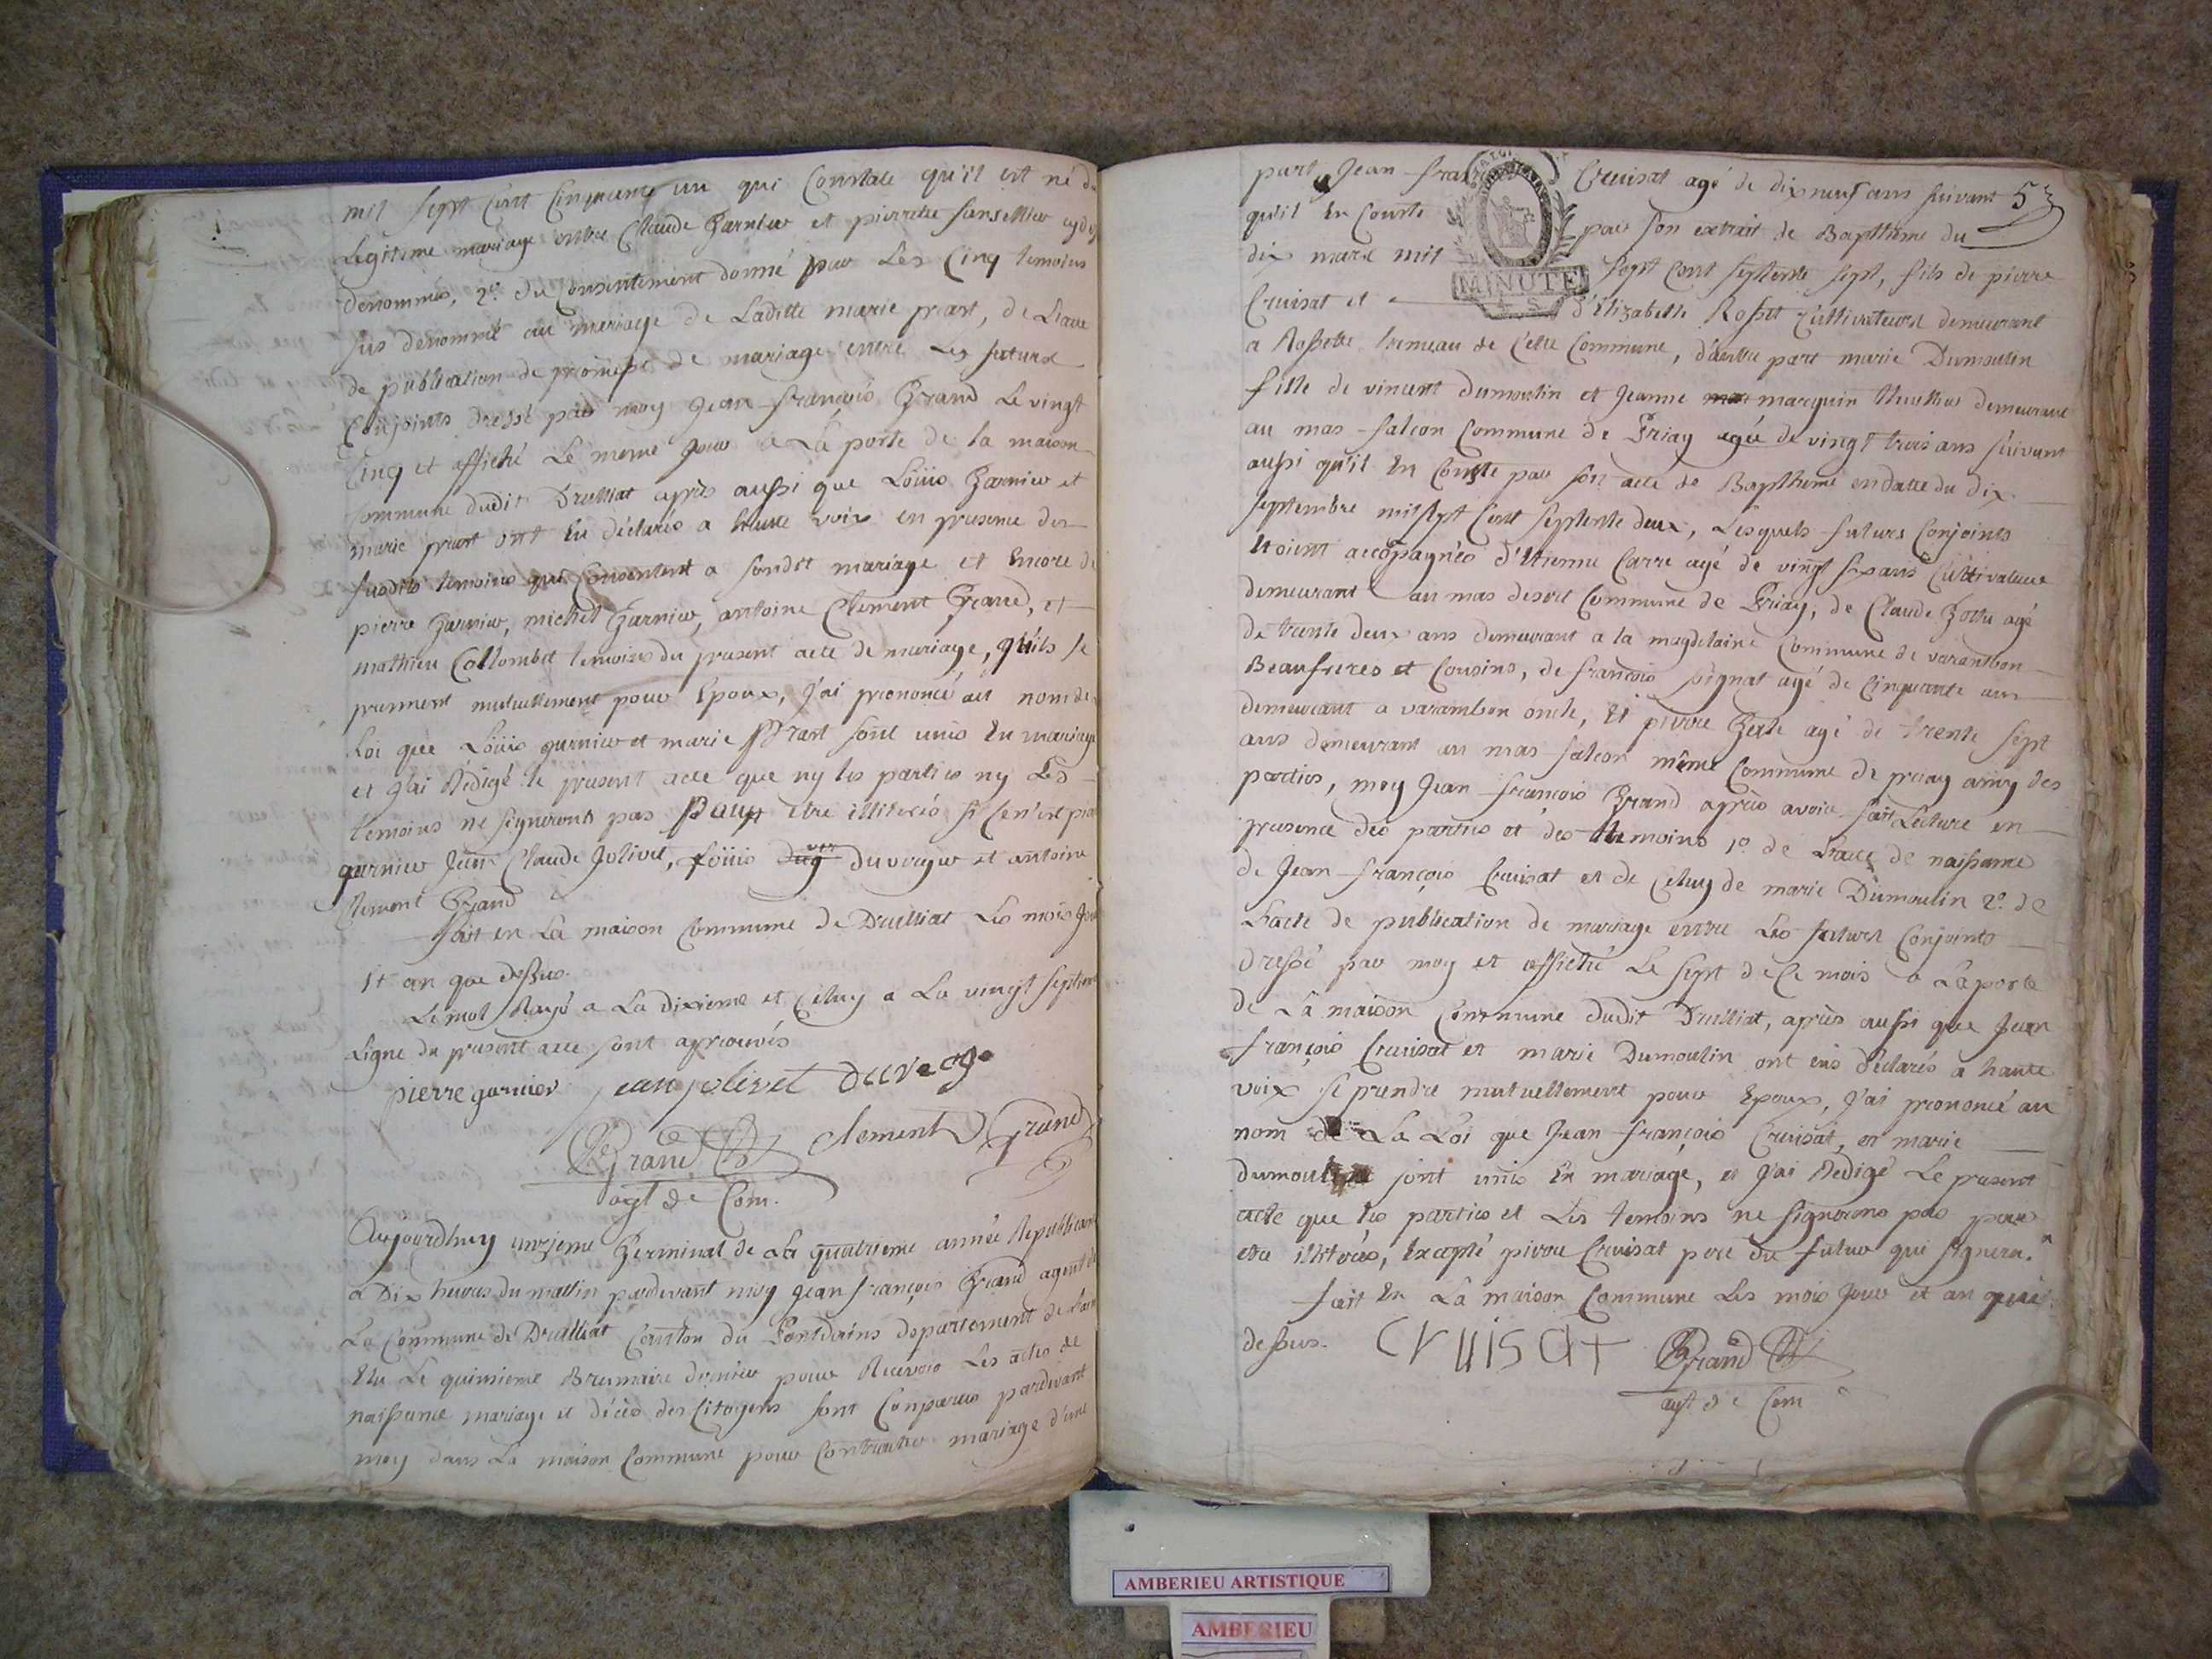 mil sept Cent Cinquante un qui Constate qu'il est né du
Legitime mariage entre Claude Garnier et pierrette
dénommés, 2°. du Consentement donné par Les Cinq temoins
sus dénommé au mariage de Laditte marie prart, de Lacte
de publication de promesse de mariage entre Les futurs
Conjoints dressé par moy Jean-françois Grand Le vingt
Cinq et affiché Le meme Jour a La porte de la maison
Commune dudit Druilliat après aussi que Loüis Garnier et
marie prart ont Eu déclarés a haute voix en presence des
susdits temoins qui Consentent a sondit mariage et Encore de
pierre Garnier, michel Garnier, antoine Clement Grand, et
mathieu Collombet temoins du present acte de mariage, qu'ils se
prennent mutuellement pour Epoux, J'ai prononcé au nom de
Loi que Loüis garnier et marie Prart sont unis En mariage
et J'ai Rédigé le present acte que ny les parties ny Les
temoins ne signeronts pas Pour etre illiterés si Ce n'est pierre
garnier Jean Claude Jolivet, Loüis duvrayer et antoine
Clement Grand
fait en La maison Commune de Druilliat Les mois Jour
it an que dessus.
Le mot Rayé a La dixieme et Celuy a La vingt septieme
Ligne du present acte sont aprouvés
pierre garnier jean jolivet
clement Grand
Grand
agt de Com.
Aujourdhuy unzieme Germinal de La quatrieme année Republicaine
a Dix heures du mattin pardevant moy Jean françois Grand agent de
La Commune de Druilliat Canton du Pontdains departement de Lain
Elu Le quinsieme Brumaire dernier pour Recevoir Les actes de
naissance mariage et décès des Citoyens sont Conparus pardevant
moy dans La maison Commune pour Contracter mariage d'une
53
part, Jean-françois Cruisat agé de dix neuf ans suivant
qu'il En Conste par son extrait de Baptheme du
dix mars mil sept Cent septente sept, fils de pierre
Cruisat et d'Elizabette Rosset Cultivateurs demeurant
MINUTE
a Rossette hameau de Cette Commune, d'autre part marie Dumoulin
fille de vincent dumoulin et Jeanne marguin demeurant
au mas-falcon Commune de Priay agée de vingt trois ans suivant
aussi qu'il En Conste par son acte de Baptheme en datte du dix
septembre mil sept Cent septente deux, Lesquels futurs Conjoints
Etoient accopagnés d'Etienne Carre agé de vingt six ans Cultivateur
demeurant au mas Commune de Priay, de Claude agé
de trente deux ans demeurant a la magdelaine Commune de varanbon
Beaufreres et Cousins, de françois agé de Cinquante ans
demeurant a varambon oncle, Et pierre agé de trente sept
ans demeurant au mas-falcon même Commune de priay amy des
parties, moy Jean-françois Grand après avoir fait Lecture en
presence des parties et des temoins 1°. de Lacte de naissance
de Jean-françois Cruisat et de Celuy de marie Dumoulin 2°. de
Lacte de publication de mariage entre Les futurs Conjoints
dressé par moy et affiché Le sept de Ce mois a La porte
de La maison Commune dudit Druilliat, après aussi que Jean
françois Cruisat et marie Dumoulin ont eus déclarés a haute
voix se prendre mutuellement pour Epoux, J'ai prononcé au
nom de La Loi que Jean-françois Cruisat, et marie
dumoulin sont unis En mariage, et J'ai Redigé Le present
acte que Les parties et Les temoins ne signerons pas pour
etre illiterés, Excepté pierre Cruisat pere du futur qui signera.
fait En La maison Commune Les mois Jour et an que
dessus. cruisat Grand
agt de Com
AMBERIEU ARTISTIQUE
AMBERIEU